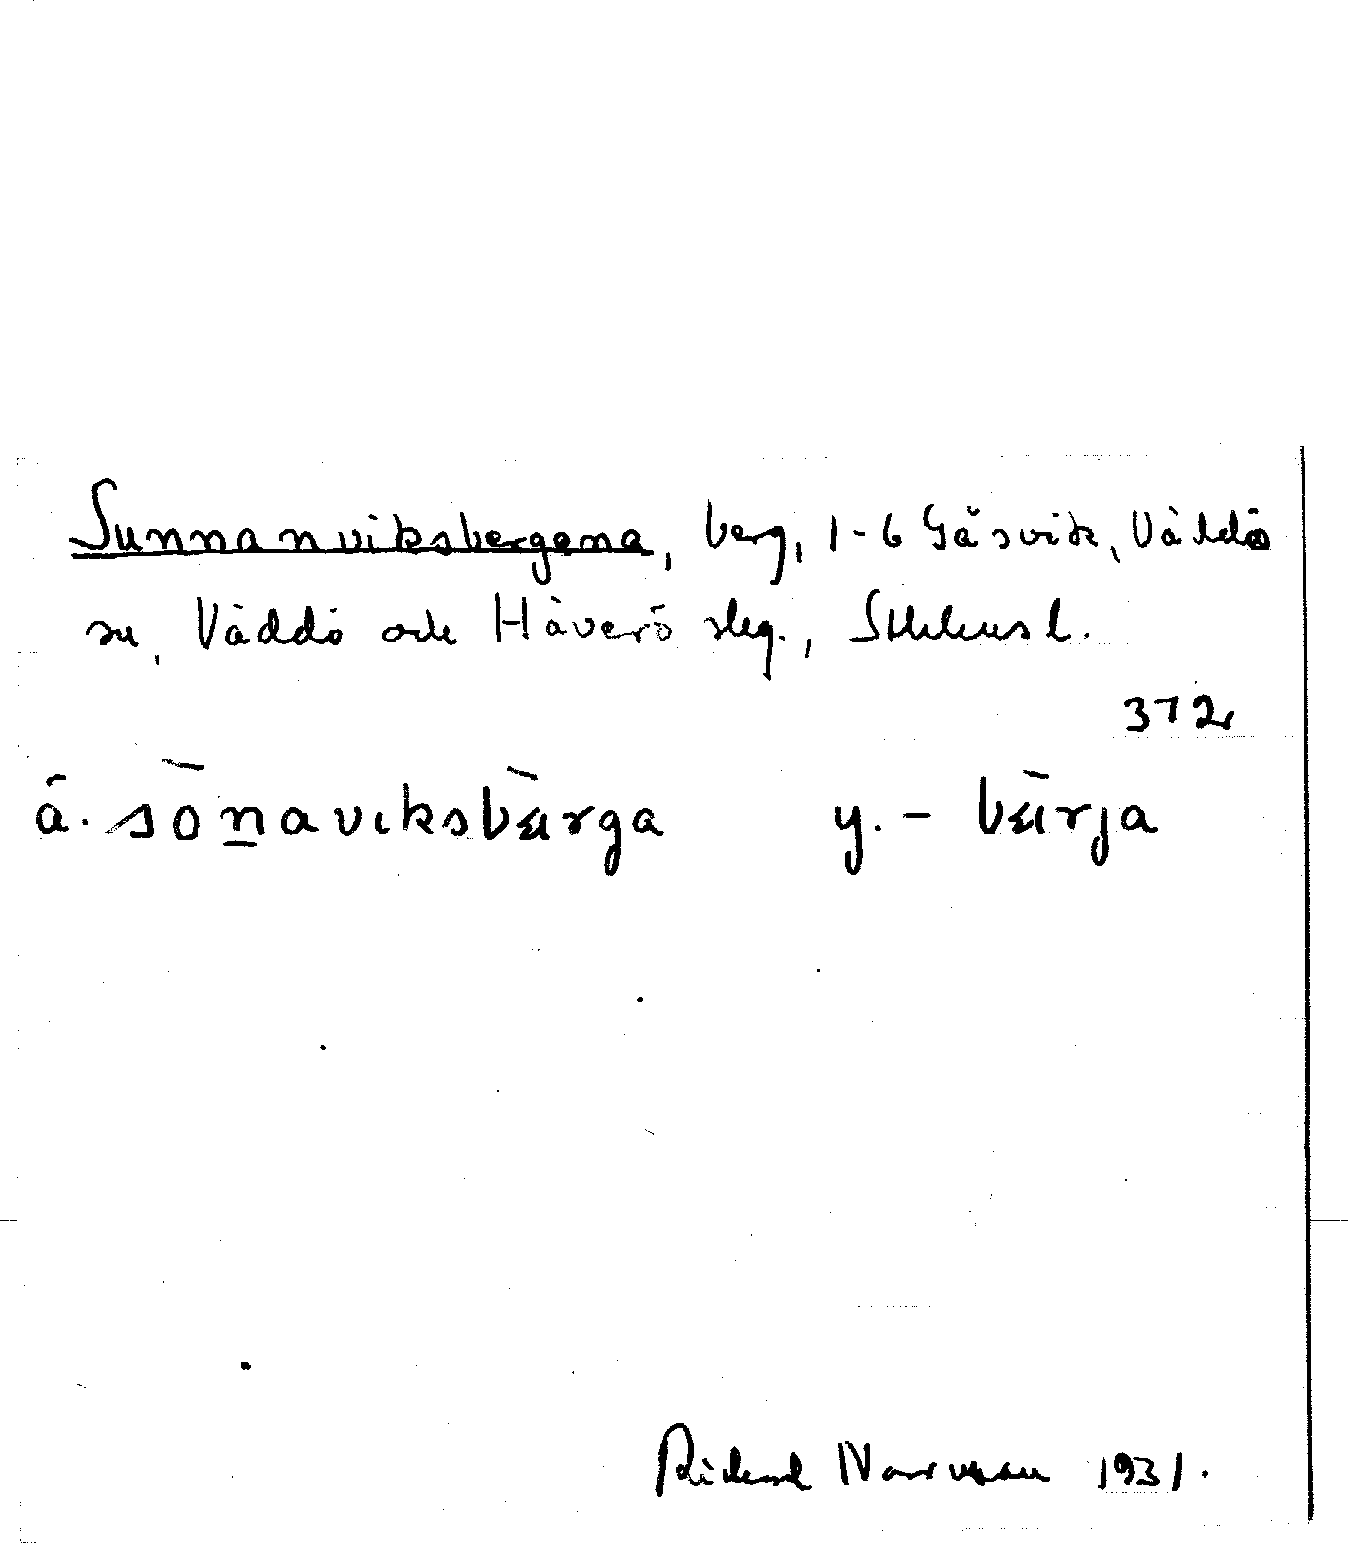 Sunnanviksbergena, berg, 1-6 Gåsvik, Väddö
sn, Väddö och Häverö skg., Sthlms l.
372
ä. sònaviksbærga y. - bærja
Rickard Norrman 1931.